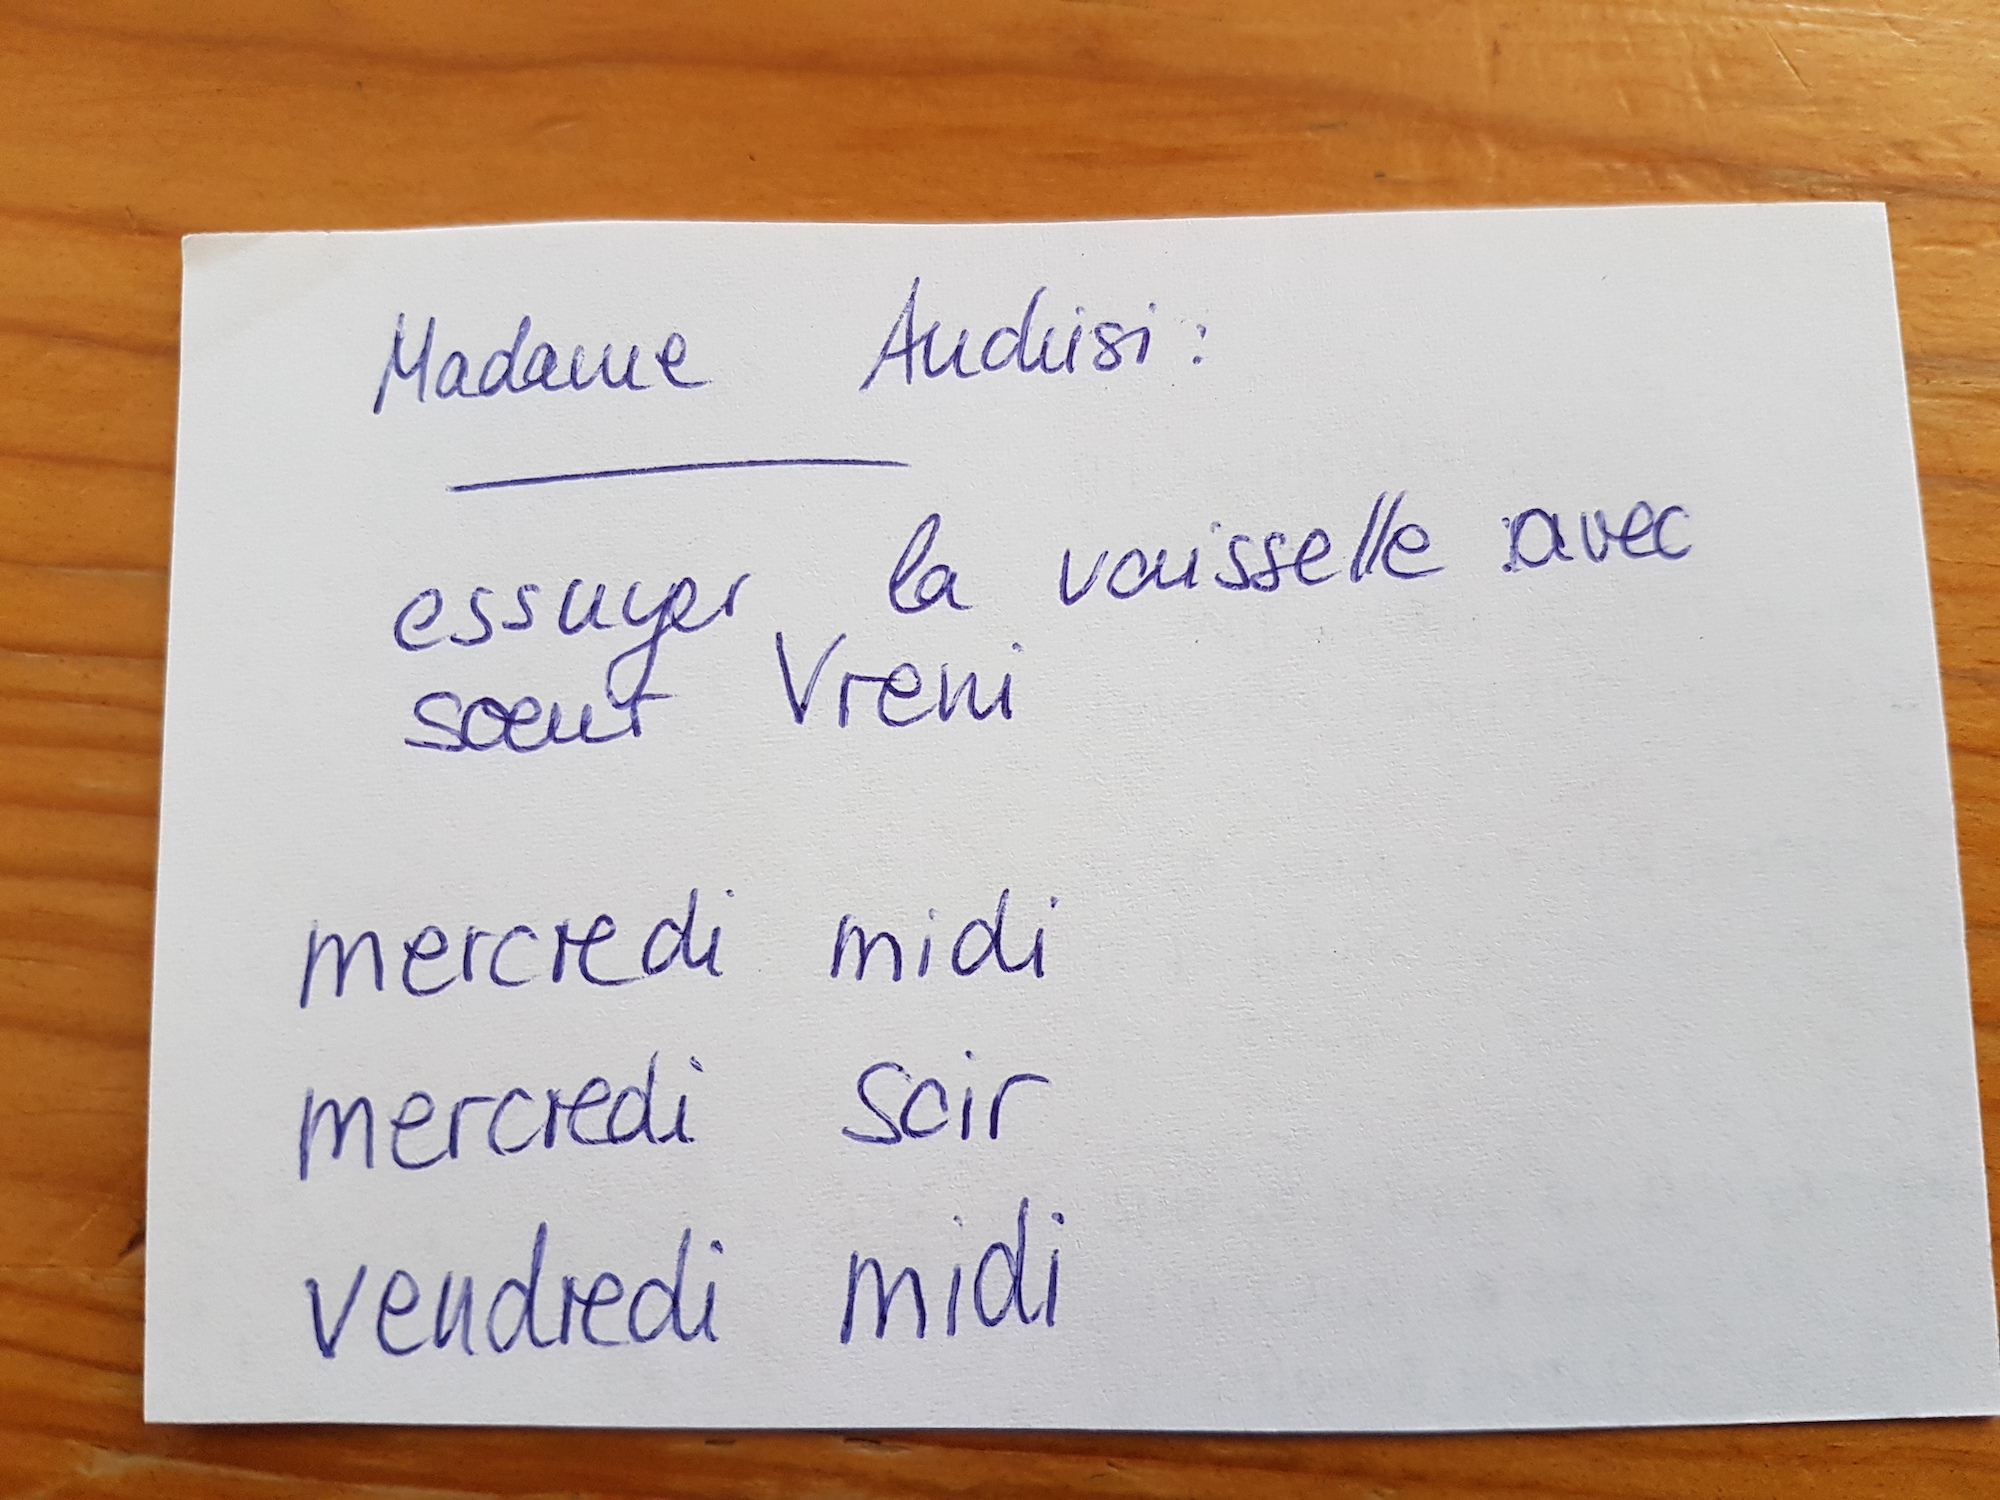 Madame Audrisi:
essuyer la vaisselle avec
sœur Vreni
mercredi midi
mercredi soir
vendredi midi